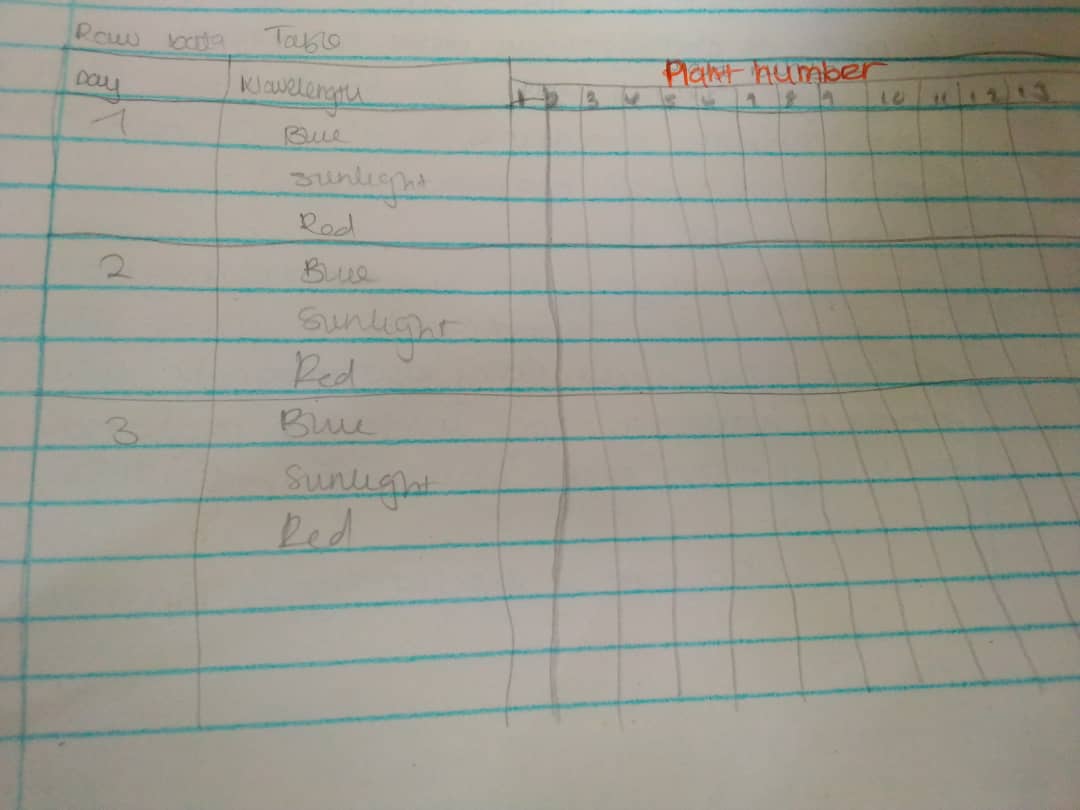 Raw Data Table
Day Wavelength Plant number
1 2 3 4 5 6 7 8 9 10 11 12 13
1 Blue
Sunlight
Red
2 Blue
Sunlight
Red
3 Blue
Sunlight
Red